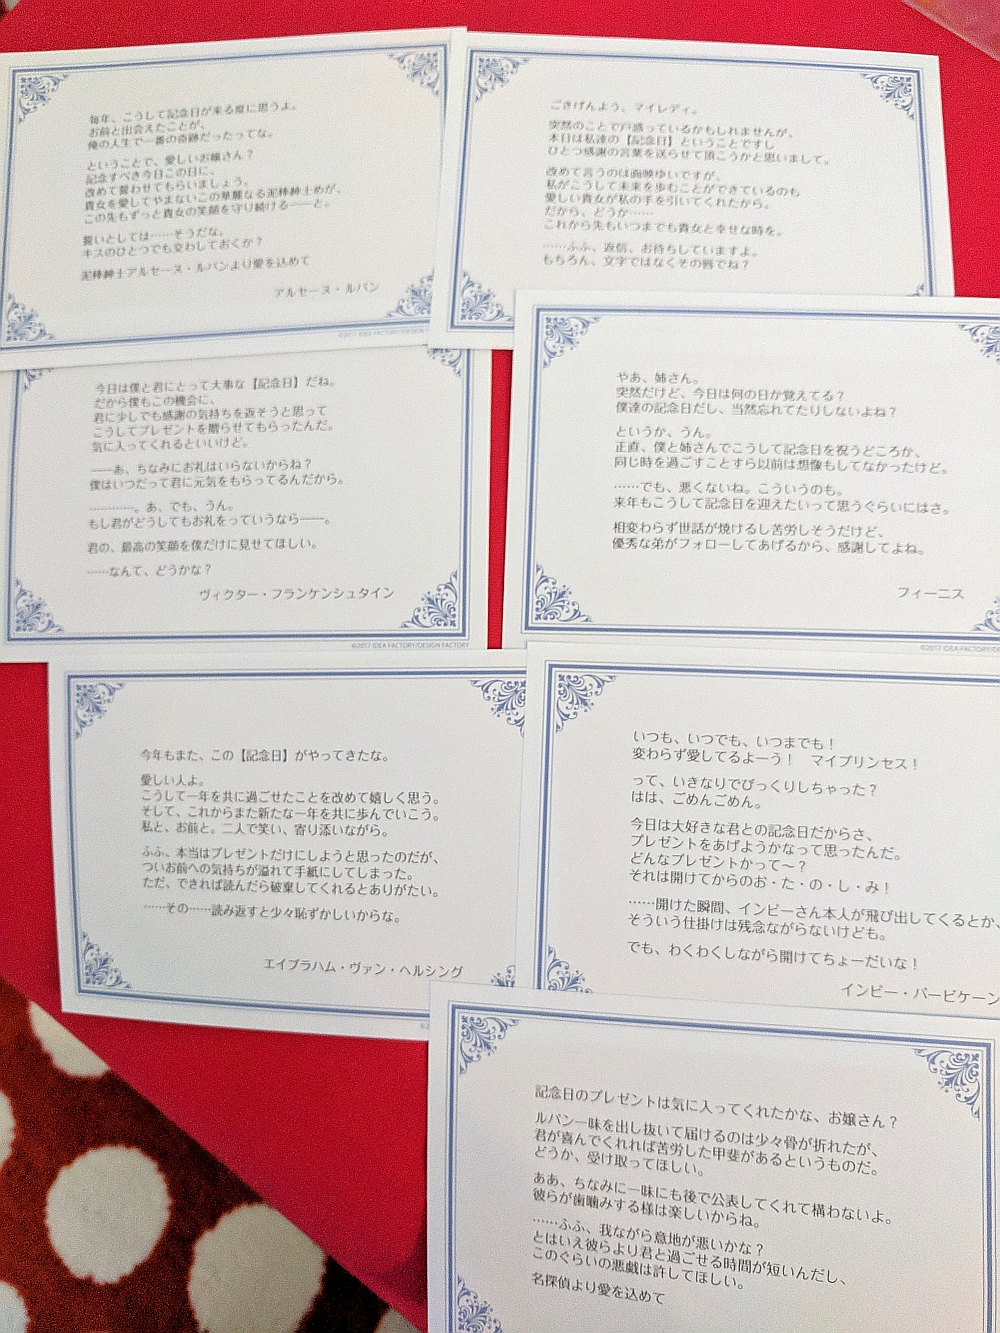 毎年、こうして記念日が来る度に思うよ。
お前と出会えたことが、
俺の人生で一番の奇跡だったってな。
ということで、愛しいお嬢さん？
記念すべき今日この日に、
改めて誓わせてもらいましょう。
貴女を愛してやまないこの華麗なる泥棒紳士めが、
この先もずっと貴女の笑顔を守り続ける――と。
誓いとしては……そうだな。
キスのひとつでも交わしておくか？
泥棒紳士アルセーヌ・ルパンより愛を込めて
アルセーヌ・ルパン
©2017 IDEA FACTORY/DESIGN F
ごきげんよう、マイレディ。
突然のことで戸惑っているかもしれませんが、
本日は私達の【記念日】ということですし
ひとつ感謝の言葉を送らせて頂こうかと思いまして。
改めて言うのは面映ゆいですが、
私がこうして未来を歩むことができているのも
愛しい貴女が私の手を引いてくれたから。
だから、どうか……
これから先もいつまでも貴女と幸せな時を。
……ふふ、返信、お待ちしていますよ。
もちろん、文字ではなくその唇でね？
今日は僕と君にとって大事な【記念日】だね。
だから僕もこの機会に、
君に少しでも感謝の気持ちを返そうと思って
こうしてプレゼントを贈らせてもらったんだ。
気に入ってくれるといいけど。
――あ、ちなみにお礼はいらないからね？
僕はいつだって君に元気をもらってるんだから。
…………。あ、でも、うん。
もし君がどうしてもお礼をっていうなら――。
君の、最高の笑顔を僕だけに見せてほしい。
……なんて、どうかな？
ヴィクター・フランケンシュタイン
©2017 IDEA FACTORY/DESIGN FACTORY
やあ、姉さん。
突然だけど、今日は何の日か覚えてる？
僕達の記念日だし、当然忘れてたりしないよね？
というか、うん。
正直、僕と姉さんでこうして記念日を祝うどころか、
同じ時を過ごすことすら以前は想像もしてなかったけど。
……でも、悪くないね。こういうのも。
来年もこうして記念日を迎えたいって思うぐらいにはさ。
相変わらず世話が焼けるし苦労しそうだけど、
優秀な弟がフォローしてあげるから、感謝してよね。
フィーニス
©2017 IDEA FACTORY/DES
今年もまた、この【記念日】がやってきたな。
愛しい人よ。
こうして一年を共に過ごせたことを改めて嬉しく思う。
そして、これからまた新たな一年を共に歩んでいこう。
私と、お前と。二人で笑い、寄り添いながら。
ふふ、本当はプレゼントだけにしようと思ったのだが、
ついお前への気持ちが溢れて手紙にしてしまった。
ただ、できれば読んだら破棄してくれるとありがたい。
……その……読み返すと少々恥ずかしいからな。
エイブラハム・ヴァン・ヘルシング
いつも、いつでも、いつまでも！
変わらず愛してるよーう！　マイプリンセス！
って、いきなりでびっくりしちゃった？
はは、ごめんごめん。
今日は大好きな君との記念日だからさ、
プレゼントをあげようかなって思ったんだ。
どんなプレゼントかって～？
それは開けてからのお・た・の・し・み！
……開けた瞬間、インピーさん本人が飛び出してくるとか、
そういう仕掛けは残念ながらないけども。
でも、わくわくしながら開けてちょーだいな！
インピー・バービケーン
記念日のプレゼントは気に入ってくれたかな、お嬢さん？
ルパン一味を出し抜いて届けるのは少々骨が折れたが、
君が喜んでくれれば苦労した甲斐があるというものだ。
どうか、受け取ってほしい。
ああ、ちなみに一味にも後で公表してくれて構わないよ。
彼らが歯噛みする様は楽しいからね。
……ふふ、我ながら意地が悪いかな？
とはいえ彼らより君と過ごせる時間が短いんだし、
このぐらいの悪戯は許してほしい。
名探偵より愛を込めて